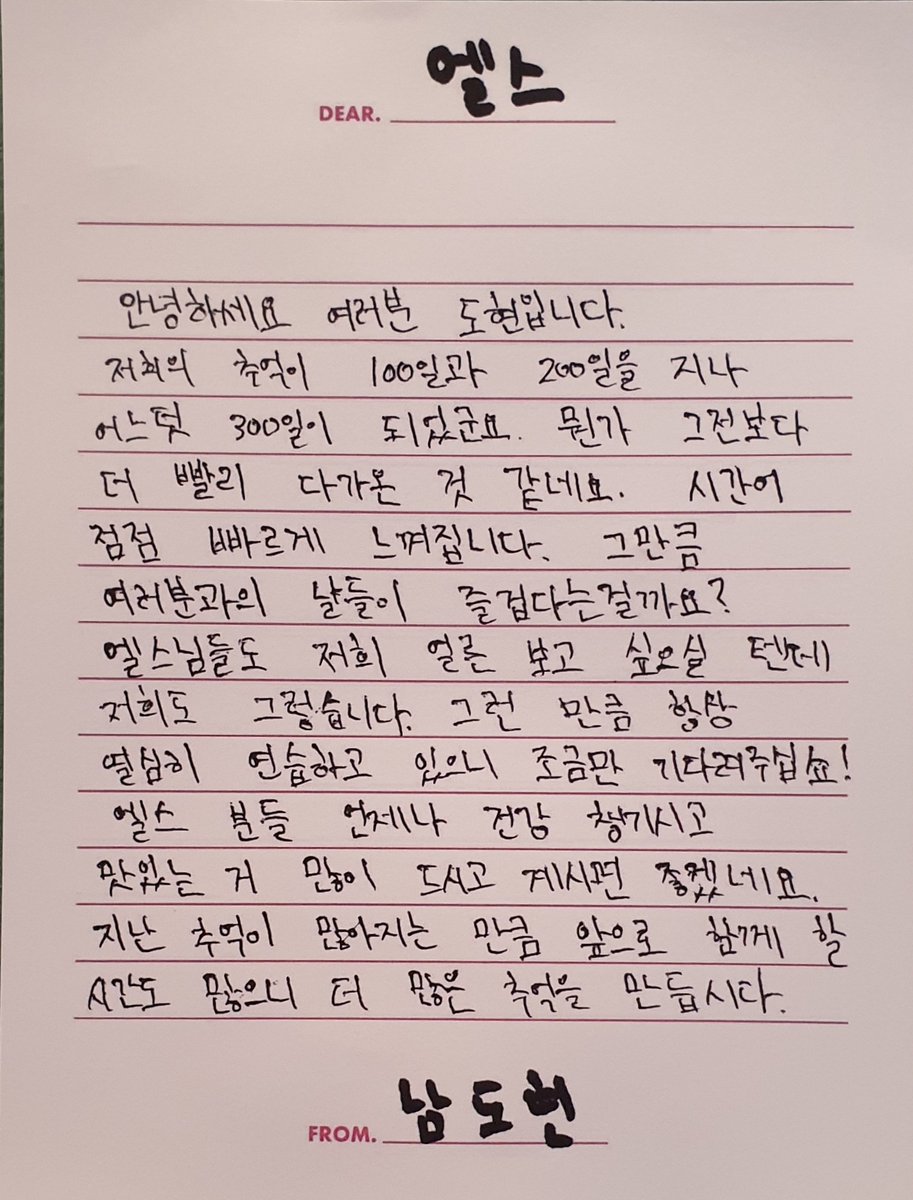 DEAR. 엘스
안녕하세요 여러분 도현입니다.
저희의 추억이 100일과 200일을 지나
어느덧 300일이 되었군요. 뭔가 그전보다
더 빨리 다가온 것 같네요. 시간이
점점 빠르게 느껴집니다. 그만큼
여러분과의 날들이 즐겁다는걸까요?
엘스님들도 저희 얼른 보고 싶으실 텐데
저희도 그렇습니다. 그런 만큼 항상
열심히 연습하고 있으니 조금만 기다려주십쇼!
엘스 분들 언제나 건강 챙기시고
맛있는 거 많이 드시고 계시면 좋겠네요.
지난 추억이 많아지는 만큼 앞으로 함께 할
시간도 많으니 더 많은 추억을 만듭시다.
FROM. 남도현